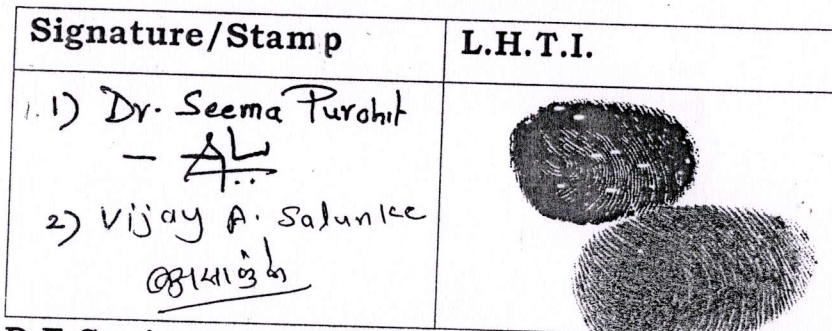 Signature/Stamp L.H.T.I.
1) Dr. Seema Purohit
2) Vijay A. Salunke